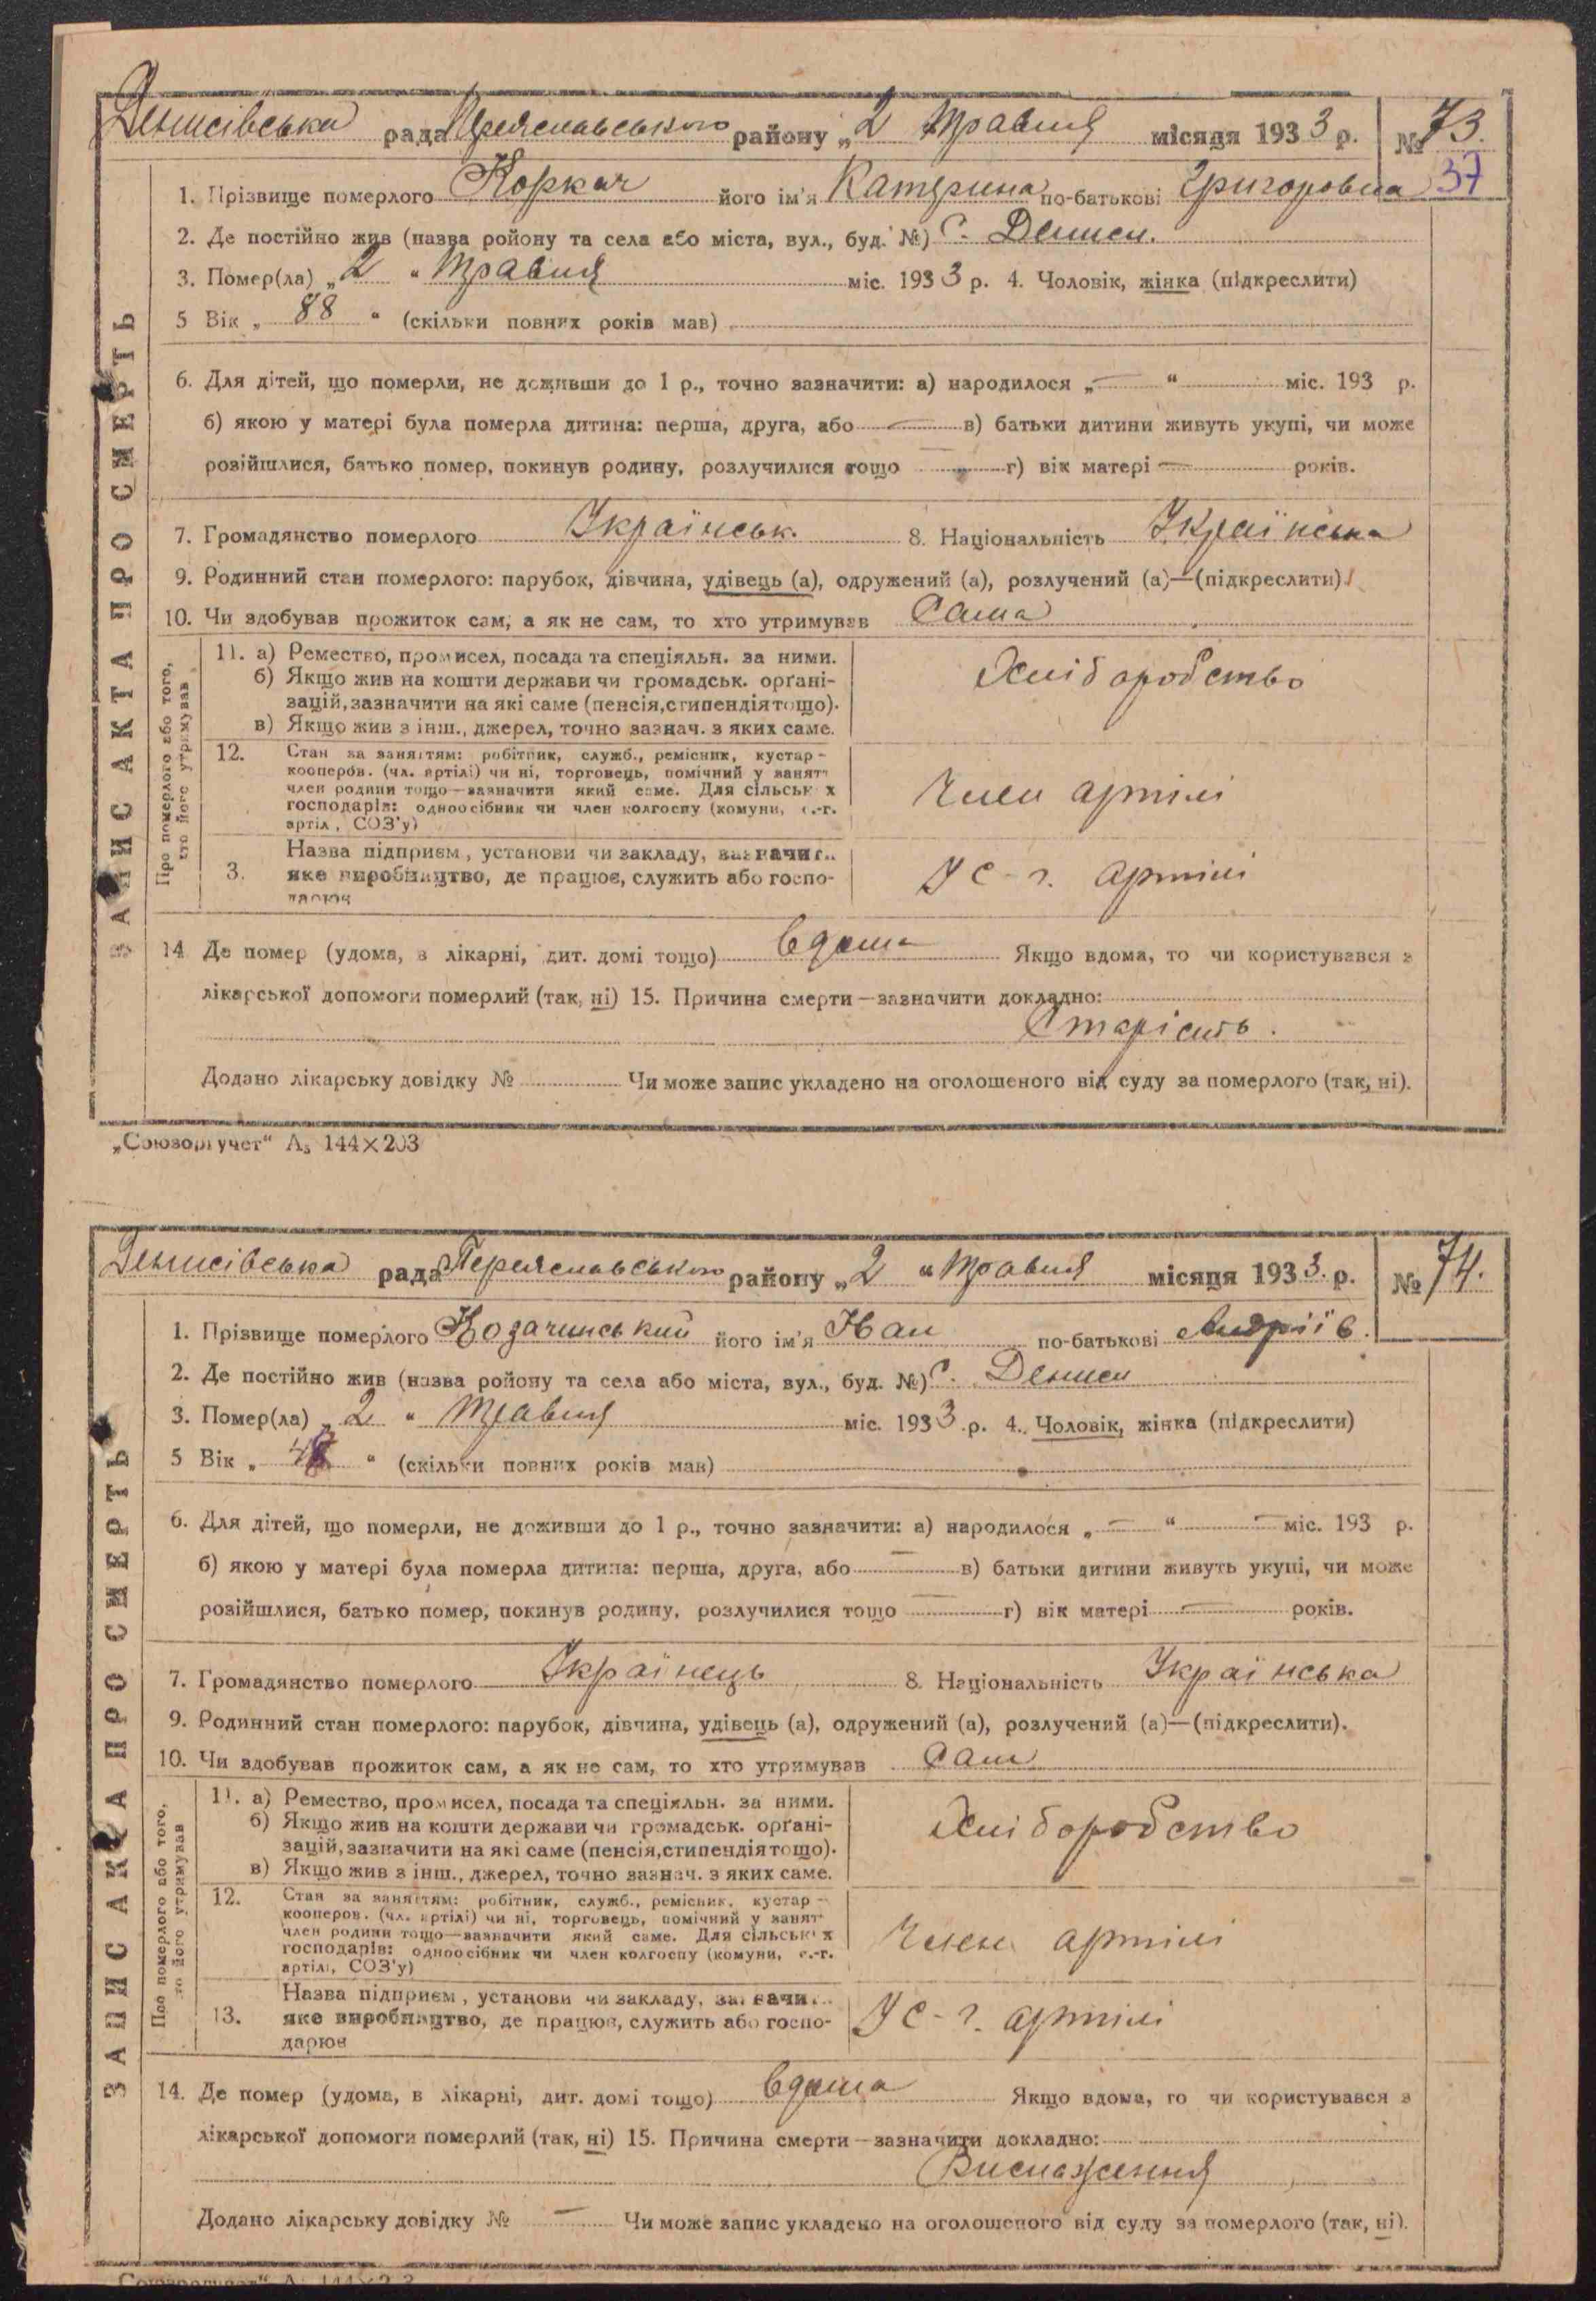 Денисівська рада Переяславського району „2 травня місяця 1933 р. № 73.
37
1. Прізвище померлого Коркач його ім'я Катерина по-батькові Григоровна
2. Де постійно жив (назва ройону та села або міста, вул., буд. №) С. Дениси.
3. Помер(ла) „2 “ травня міс. 1933 р. 4. Чоловік, жінка (підкреслити)
5 Вік „ 88 “ (скільки повних років мав)
6. Для дітей, що померли, не доживши до 1 р., точно зазначити: а) народилося „— “ міс. 193 р.
б) якою у матері була померла дитина: перша, друга, або — в) батьки дитини живуть укупі, чи може
розійшлися, батько помер, покинув родину, розлучилися тощо г) вік матері — років.
7. Громадянство померлого Українськ. 8. Національність Українська
9. Родинний стан померлого: парубок, дівчина, удівець (а), одружений (а), розлучений (а)—(підкреслити).
10. Чи здобував прожиток сам, а як не сам, то хто утримував Сама
ЗАПИС АКТА ПРО СМЕРТЬ
Про померлого або того, хто його утримував
11. а) Ремество, промисел, посада та спеціяльн. за ними.
б) Якщо жив на кошти держави чи громадськ. орґані-
зацій, зазначити на які саме (пенсія, стипендія тощо).
в) Якщо жив з інш., джерел, точно зазнач. з яких саме.
Хліборобство
12. Стан за заняттям: робітник, служб., ремісник, кустар –
кооперов. (чл. артілі) чи ні, торговець, помічний у занят
член родини тощо—зазначити який саме. Для сільськ х
господарів: одноосібник чи член колгоспу (комуни, с.-г.
артіл, СОЗ'у)
Член артілі
3. Назва підприєм, установи чи закладу, зазначит
яке виробництво, де працює, служить або госпо-
дарює
У с-г. артілі
14 Де помер (удома, в лікарні, дит. домі тощо) вдома Якщо вдома, то чи користувався з
лікарської допомоги померлий (так, ні) 15. Причина смерти—зазначити докладно:
Старість.
Додано лікарську довідку № Чи може запис укладено на оголошеного від суду за померлого (так, ні).
„Союзоргучет“ А₅ 144×203
Денисівська рада Переяславського району „2 “ травня місяця 1933. р. № 74.
1. Прізвище померлого Козачинський його ім'я Іван по-батькові Андріїв.
2. Де постійно жив (назва ройону та села або міста, вул., буд. №) С. Дениси
3. Помер(ла) „ 2 “ травня міс. 1933 р. 4. Чоловік, жінка (підкреслити)
5 Вік „ “ (скільки повних років мав)
6. Для дітей, що померли, не доживши до 1 р., точно зазначити: а) народилося „ — “ — міс. 193 р.
б) якою у матері була померла дитина: перша, друга, або — в) батьки дитини живуть укупі, чи може
розійшлися, батько помер, покинув родину, розлучилися тощо — г) вік матері — років.
7. Громадянство померлого Українець 8. Національність Українська
9. Родинний стан померлого: парубок, дівчина, удівець (а), одружений (а), розлучений (а)—(підкреслити).
10. Чи здобував прожиток сам, а як не сам, то хто утримував Сам
ЗАПИС АКТА ПРО СМЕРТЬ
Про померлого або того, хто його утримував
11. а) Ремество, промисел, посада та спеціяльн. за ними.
б) Якщо жив на кошти держави чи громадськ. орґані-
зацій, зазначити на які саме (пенсія, стипендія тощо).
в) Якщо жив з інш., джерел, точно зазнач. з яких саме.
Хліборобство
12. Стан за заняттям: робітник, служб., ремісник, кустар –
кооперов. (чл. артілі) чи ні, торговець, помічний у занят
член родини тощо—зазначити який саме. Для сільськ х
господарів: одноосібник чи член колгоспу (комуни, с.-г.
артілі, СОЗ'у)
Член артілі
13. Назва підприєм, установи чи закладу, зазначи
яке виробництво, де працює, служить або госпо-
дарює
У с-г. артілі
14. Де помер (удома, в лікарні, дит. домі тощо) вдома Якщо вдома, го чи користувався з
лікарської допомоги померлий (так, ні) 15. Причина смерти—зазначити докладно:
Виснаження
Додано лікарську довідку № — Чи може запис укладено на оголошеного від суду за померлого (так, ні).